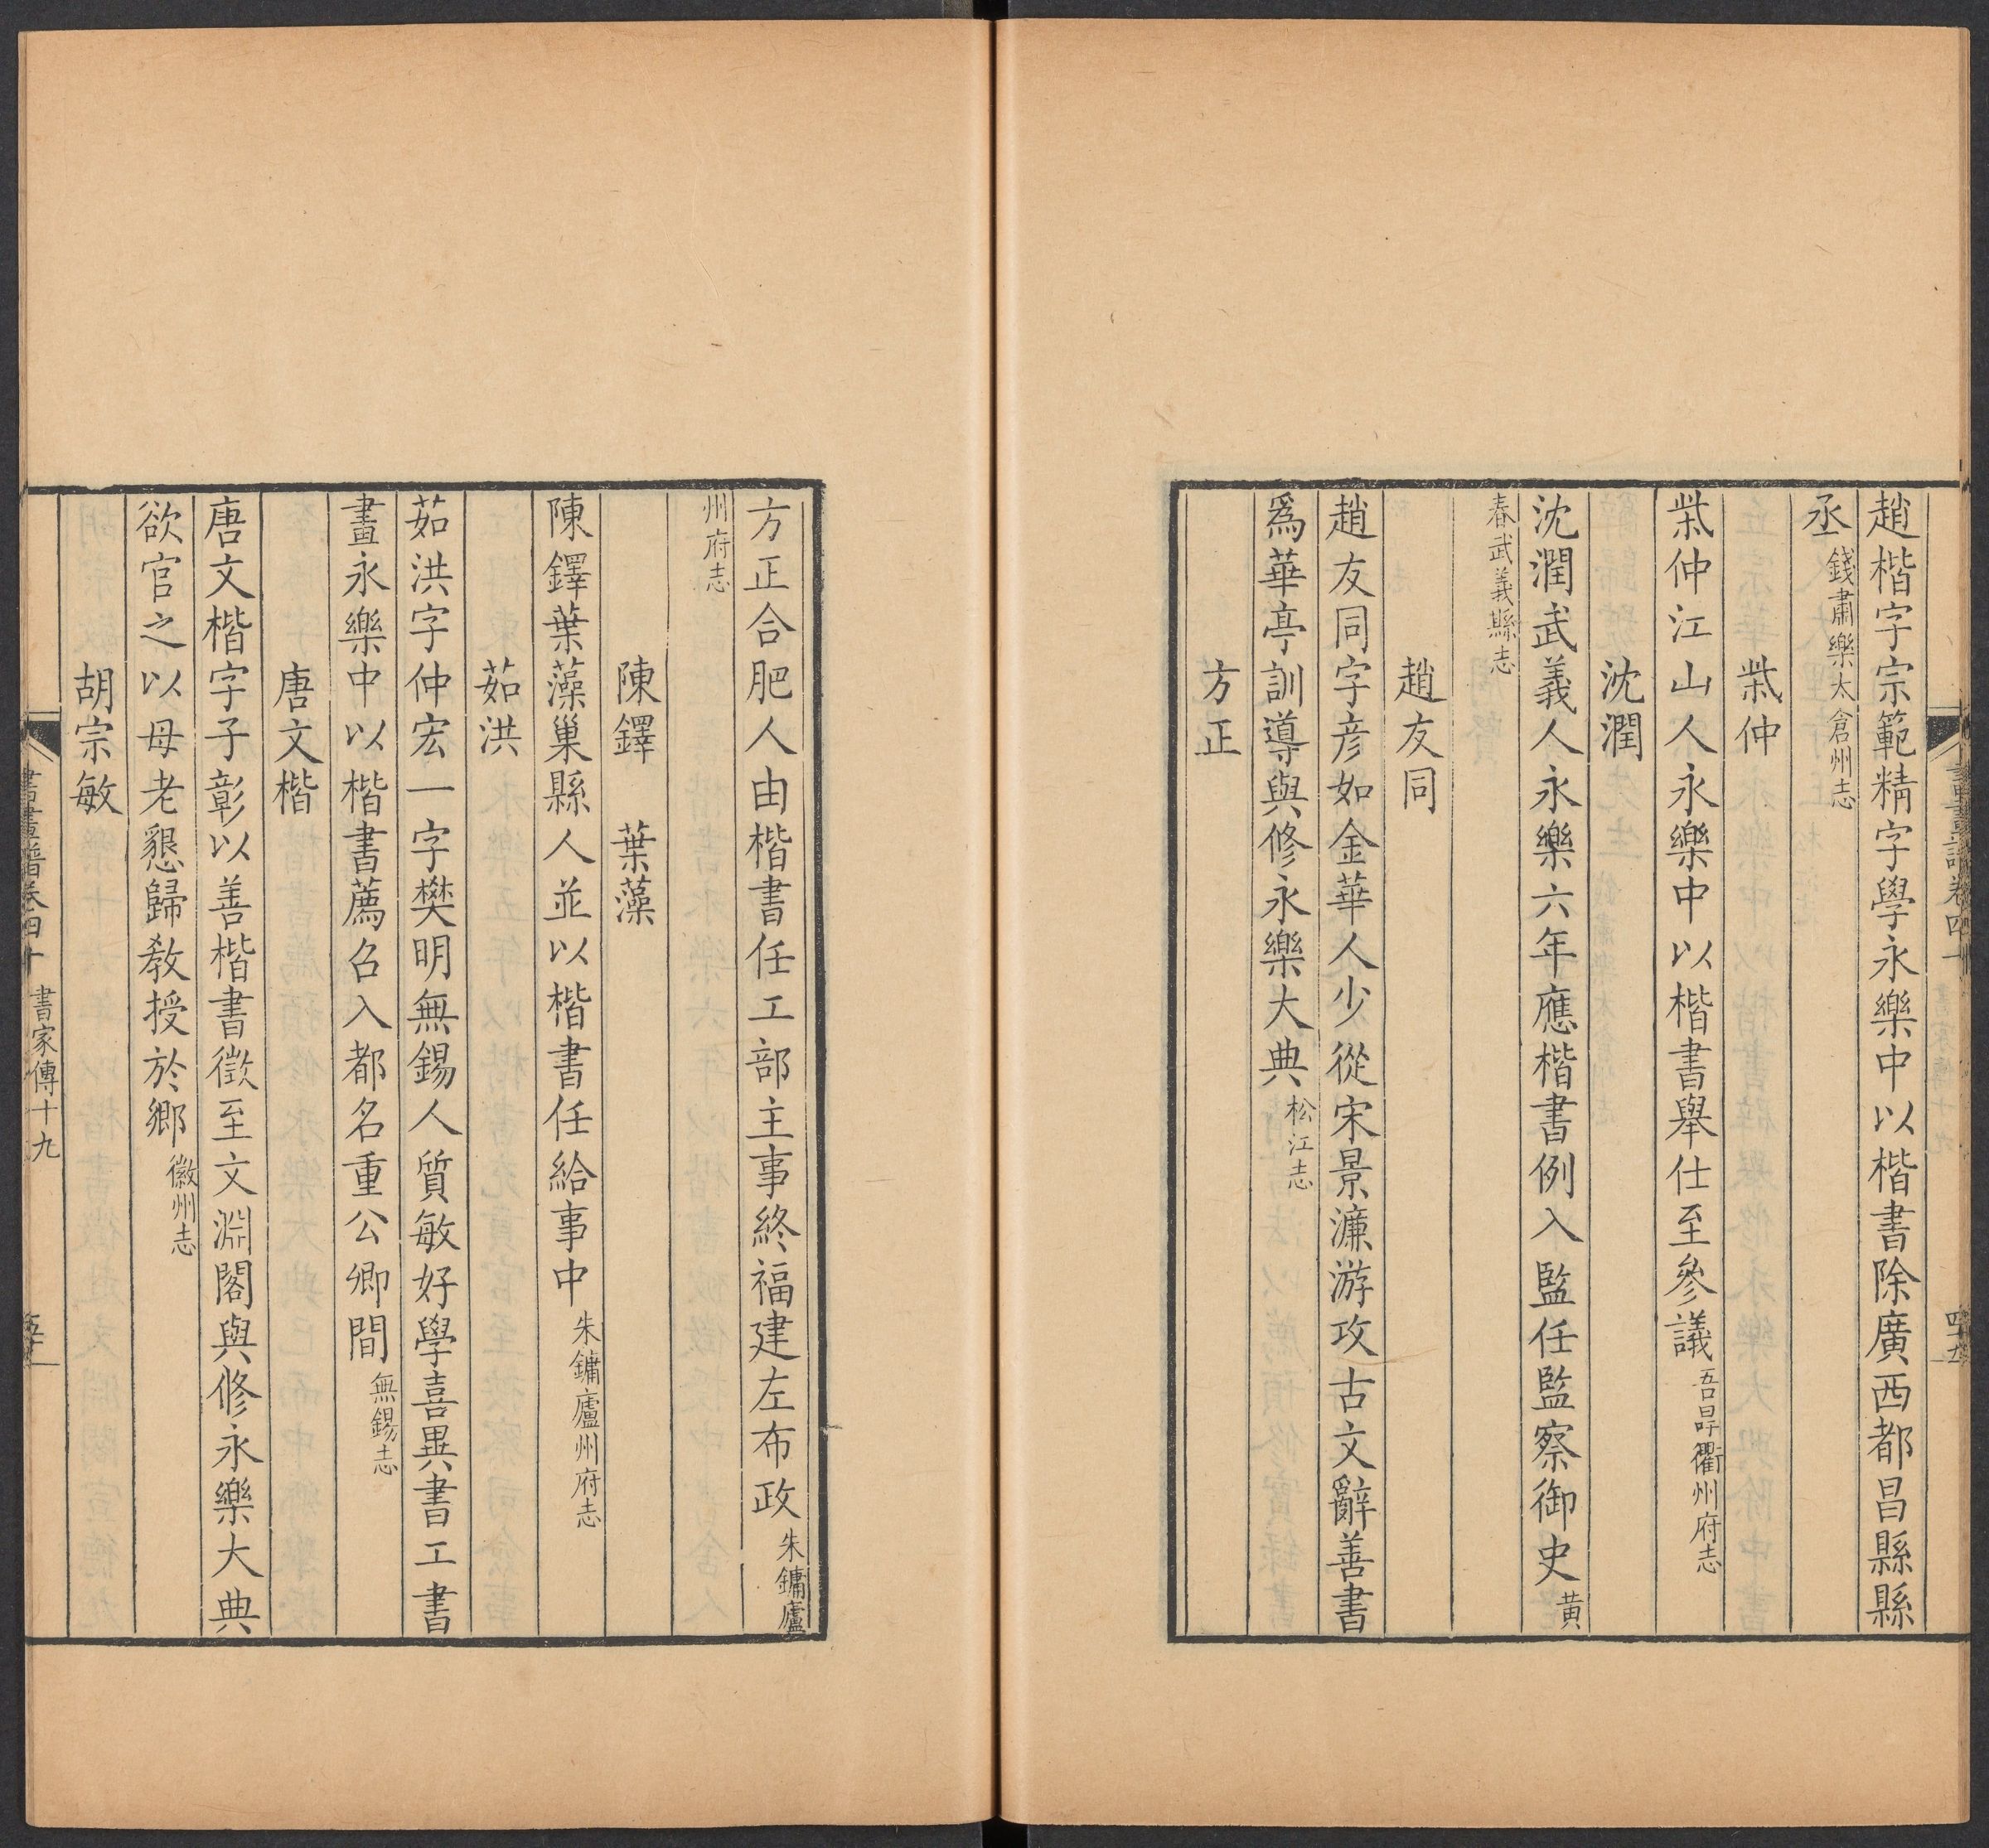 趙楷字宗範精字學永樂中以楷書除廣西都昌縣縣
丞錢肅樂太倉州志
柴仲
柴仲江山人永樂中以楷書舉仕至參議吾冔衢州府志
沈潤
沈潤武義人永樂六年應楷書例入監任監察御史黃
春武義縣志
趙友同
趙友同字彥如金華人少從宋景濂游攻古文辭善書
爲華亭訓導與修永樂大典松江志
方正
方正合肥人由楷書任工部主事終福建左布政朱鏞廬
州府志
陳鐸 葉藻
陳鐸葉藻巢縣人並以楷書任給事中朱鏞廬州府志
茹洪
茹洪字仲宏一字樊明無錫人質敏好學喜異書工書
畫永樂中以楷書薦召入都名重公卿間無錫志
唐文楷
唐文楷字子彰以善楷書徵至文淵閣與修永樂大典
欲官之以母老懇歸教授於鄉徽州志
胡宗敏
書畫譜卷四十 書家傳十九